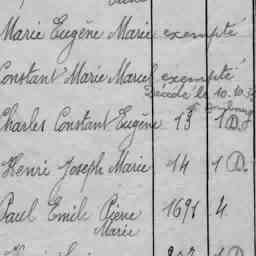 Marie Eugène Marie exempté
Constant Marie Marcel exempté
Décédé le 10.10.3
Charles Constant Eugène 13 1 D.
Henri Joseph Marie 14 1 D.
Paul Emile Pierre 1691 4
Marie